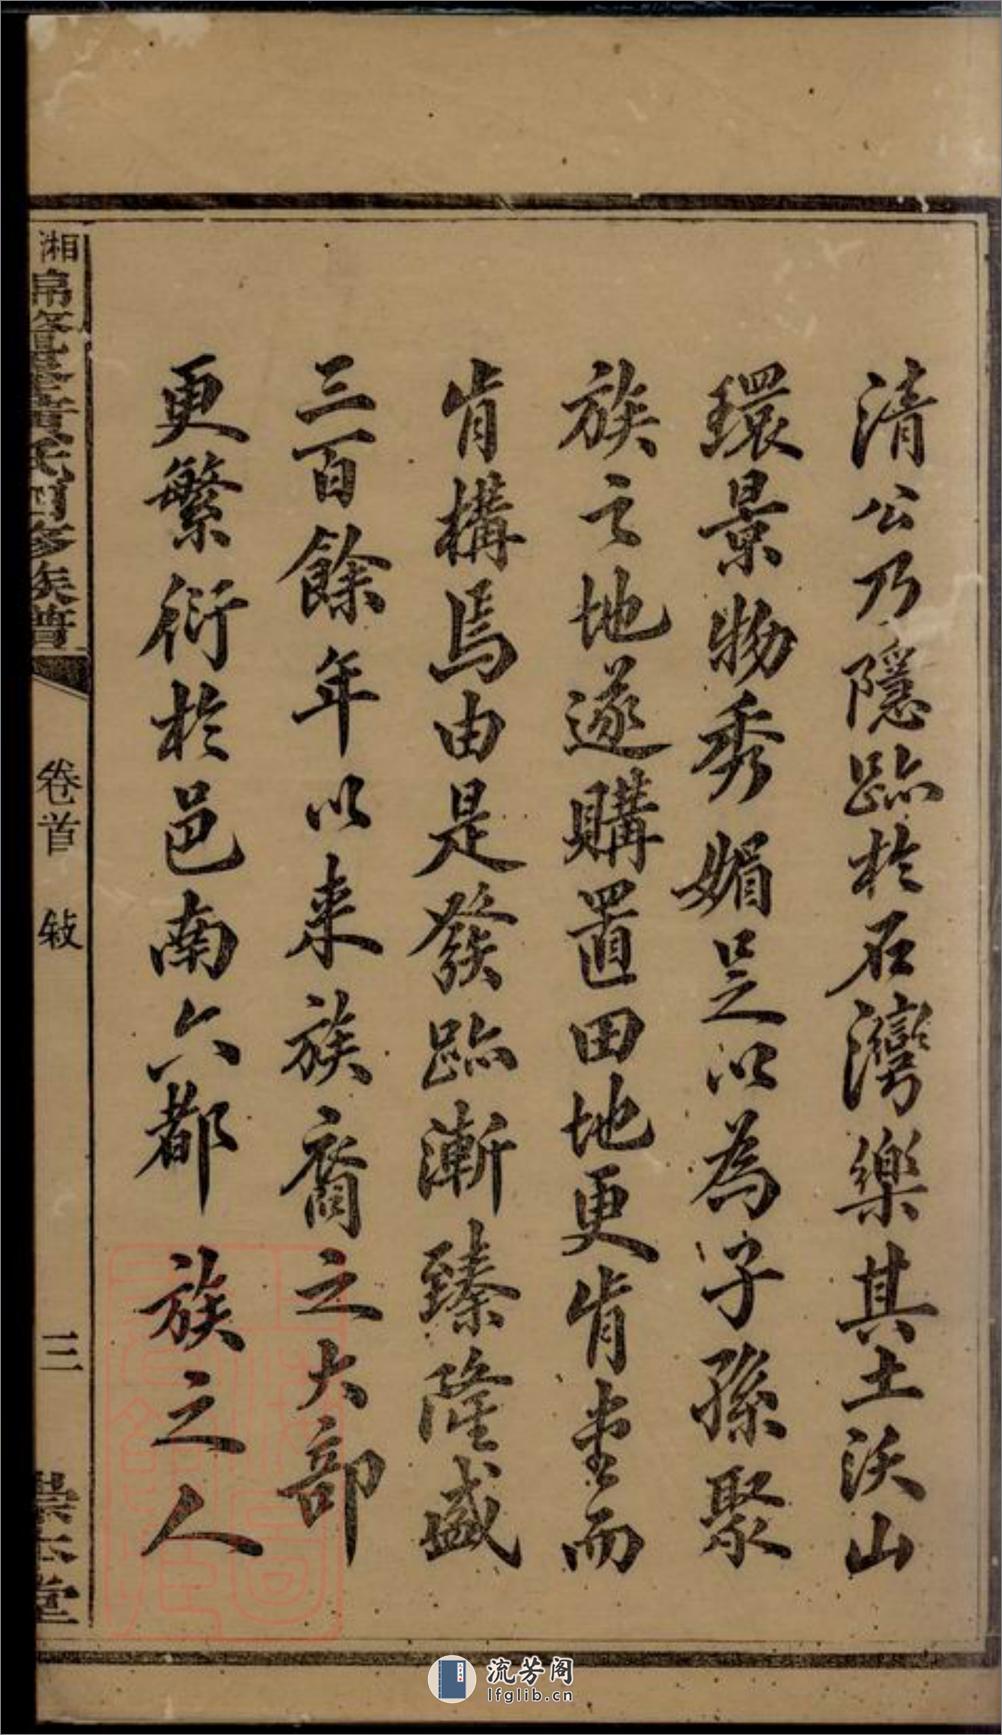 清公乃隱跡於石灣樂其土沃山
環景物秀媚足以為子孫聚
族之地遂購置田地更肯堂而
肯構焉由是發跡漸臻隆盛
三百餘年以来族裔之大部
更繁衍於邑南六都族之人
湘氏四修族譜
卷首
敍
三
堂
流芳阁
lfglib.cn